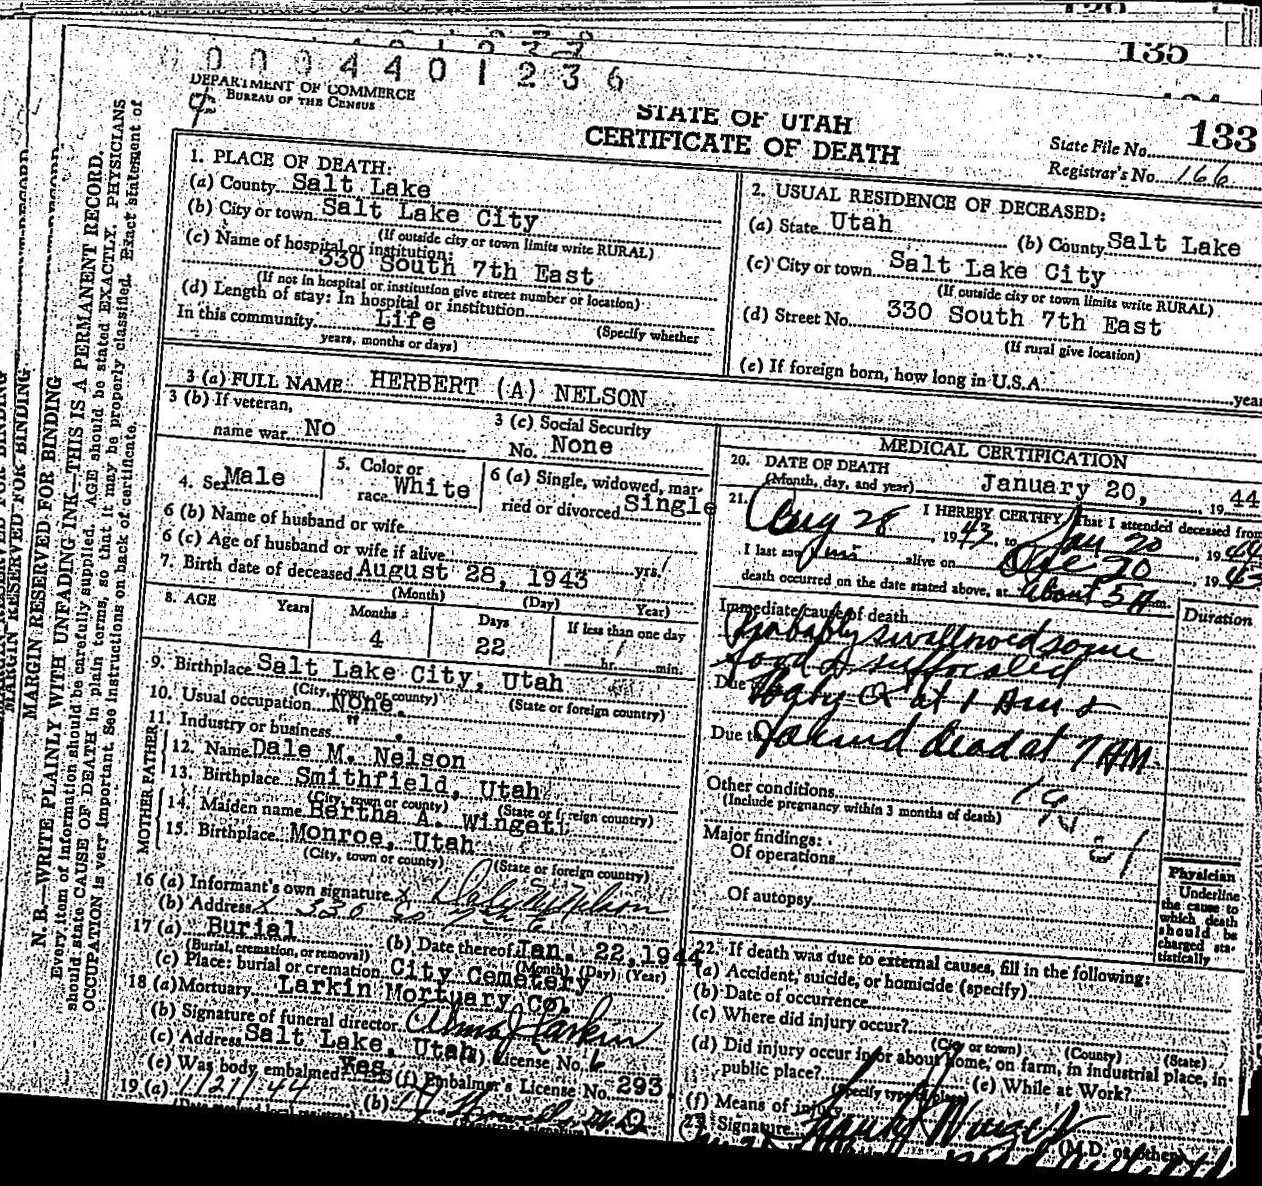 135
0004401236
DEPARTMENT OF COMMERCE
BUREAU OF THE CENSUS
STATE OF UTAH
CERTIFICATE OF DEATH
133
State File No.
Registrar's No. 166
MARGIN RESERVED FOR BINDING
N. B.—WRITE PLAINLY WITH UNFADING INK—THIS IS A PERMANENT RECORD.
Every item of information should be carefully supplied. AGE should be stated EXACTLY. PHYSICIANS
should state CAUSE OF DEATH in plain terms, so that it may be properly classified. Exact statement of
OCCUPATION is very important. See instructions on back of certificate.
1. PLACE OF DEATH:
(a) County Salt Lake
(b) City or town Salt Lake City
(If outside city or town limits write RURAL)
(c) Name of hospital or institution:
330 South 7th East
(If not in hospital or institution give street number or location)
(d) Length of stay: In hospital or institution
(Specify whether
In this community Life
years, months or days)
2. USUAL RESIDENCE OF DECEASED:
(a) State Utah (b) County Salt Lake
(c) City or town Salt Lake City
(If outside city or town limits write RURAL)
(d) Street No. 330 South 7th East
(If rural give location)
(e) If foreign born, how long in U.S.A. years
3 (a) FULL NAME: HERBERT (A) NELSON
3 (b) If veteran,
name war No
3 (c) Social Security
No. None
4. Sex Male
5. Color or
race White
6 (a) Single, widowed, mar-
ried or divorced Single
6 (b) Name of husband or wife
6 (c) Age of husband or wife if alive yrs.
7. Birth date of deceased August 28, 1943
(Month) (Day) Year)
8. AGE Years Months Days If less than one day
4 22 hr. min.
9. Birthplace Salt Lake City, Utah
(City, town, or county) (State or foreign country)
10. Usual occupation None.
11. Industry or business "
MOTHER FATHER
12. Name Dale M. Nelson
13. Birthplace Smithfield, Utah
(City, town or county) (State or foreign country)
14. Maiden name Bertha A. Wingett
15. Birthplace Monroe, Utah
(City, town or county) (State or foreign country)
16 (a) Informant's own signature x Dale M. Nelson
(b) Address x 330 So 7th E
17 (a) Burial (b) Date thereof Jan. 22, 1944
(Burial, cremation, or removal) (Month) (Day) (Year)
(c) Place: burial or cremation City Cemetery
18 (a) Mortuary Larkin Mortuary Co.
(b) Signature of funeral director Alma J Larkin
(c) Address Salt Lake, Utah (d) License No. 6
(e) Was body embalmed Yes (f) Embalmer's License No. 293
19. (a) 1/21/44 (b) M.D.
MEDICAL CERTIFICATION
20. DATE OF DEATH
(Month, day, and year) January 20, 1944
21. I HEREBY CERTIFY, That I attended deceased from
Aug 28, 1943, to Jan 20, 1944
I last saw him alive on Dec 20, 1943
death occurred on the date stated above, at About 5 A m.
Immediate cause of death Duration
Probably swallowed some
food & suffocated
Due to Baby at 1 AM &
Due to found dead at 7 AM
Other conditions
(Include pregnancy within 3 months of death)
Major findings:
Of operations
Of autopsy
Physician
Underline
the cause to
which death
should be
charged sta-
tistically
22. If death was due to external causes, fill in the following:
(a) Accident, suicide, or homicide (specify)
(b) Date of occurrence
(c) Where did injury occur?
(City or town) (County) (State)
(d) Did injury occur in or about home, on farm, in industrial place, in
public place?
(Specify type of place) (e) While at Work?
(f) Means of injury
23. Signature
(M.D. or other)